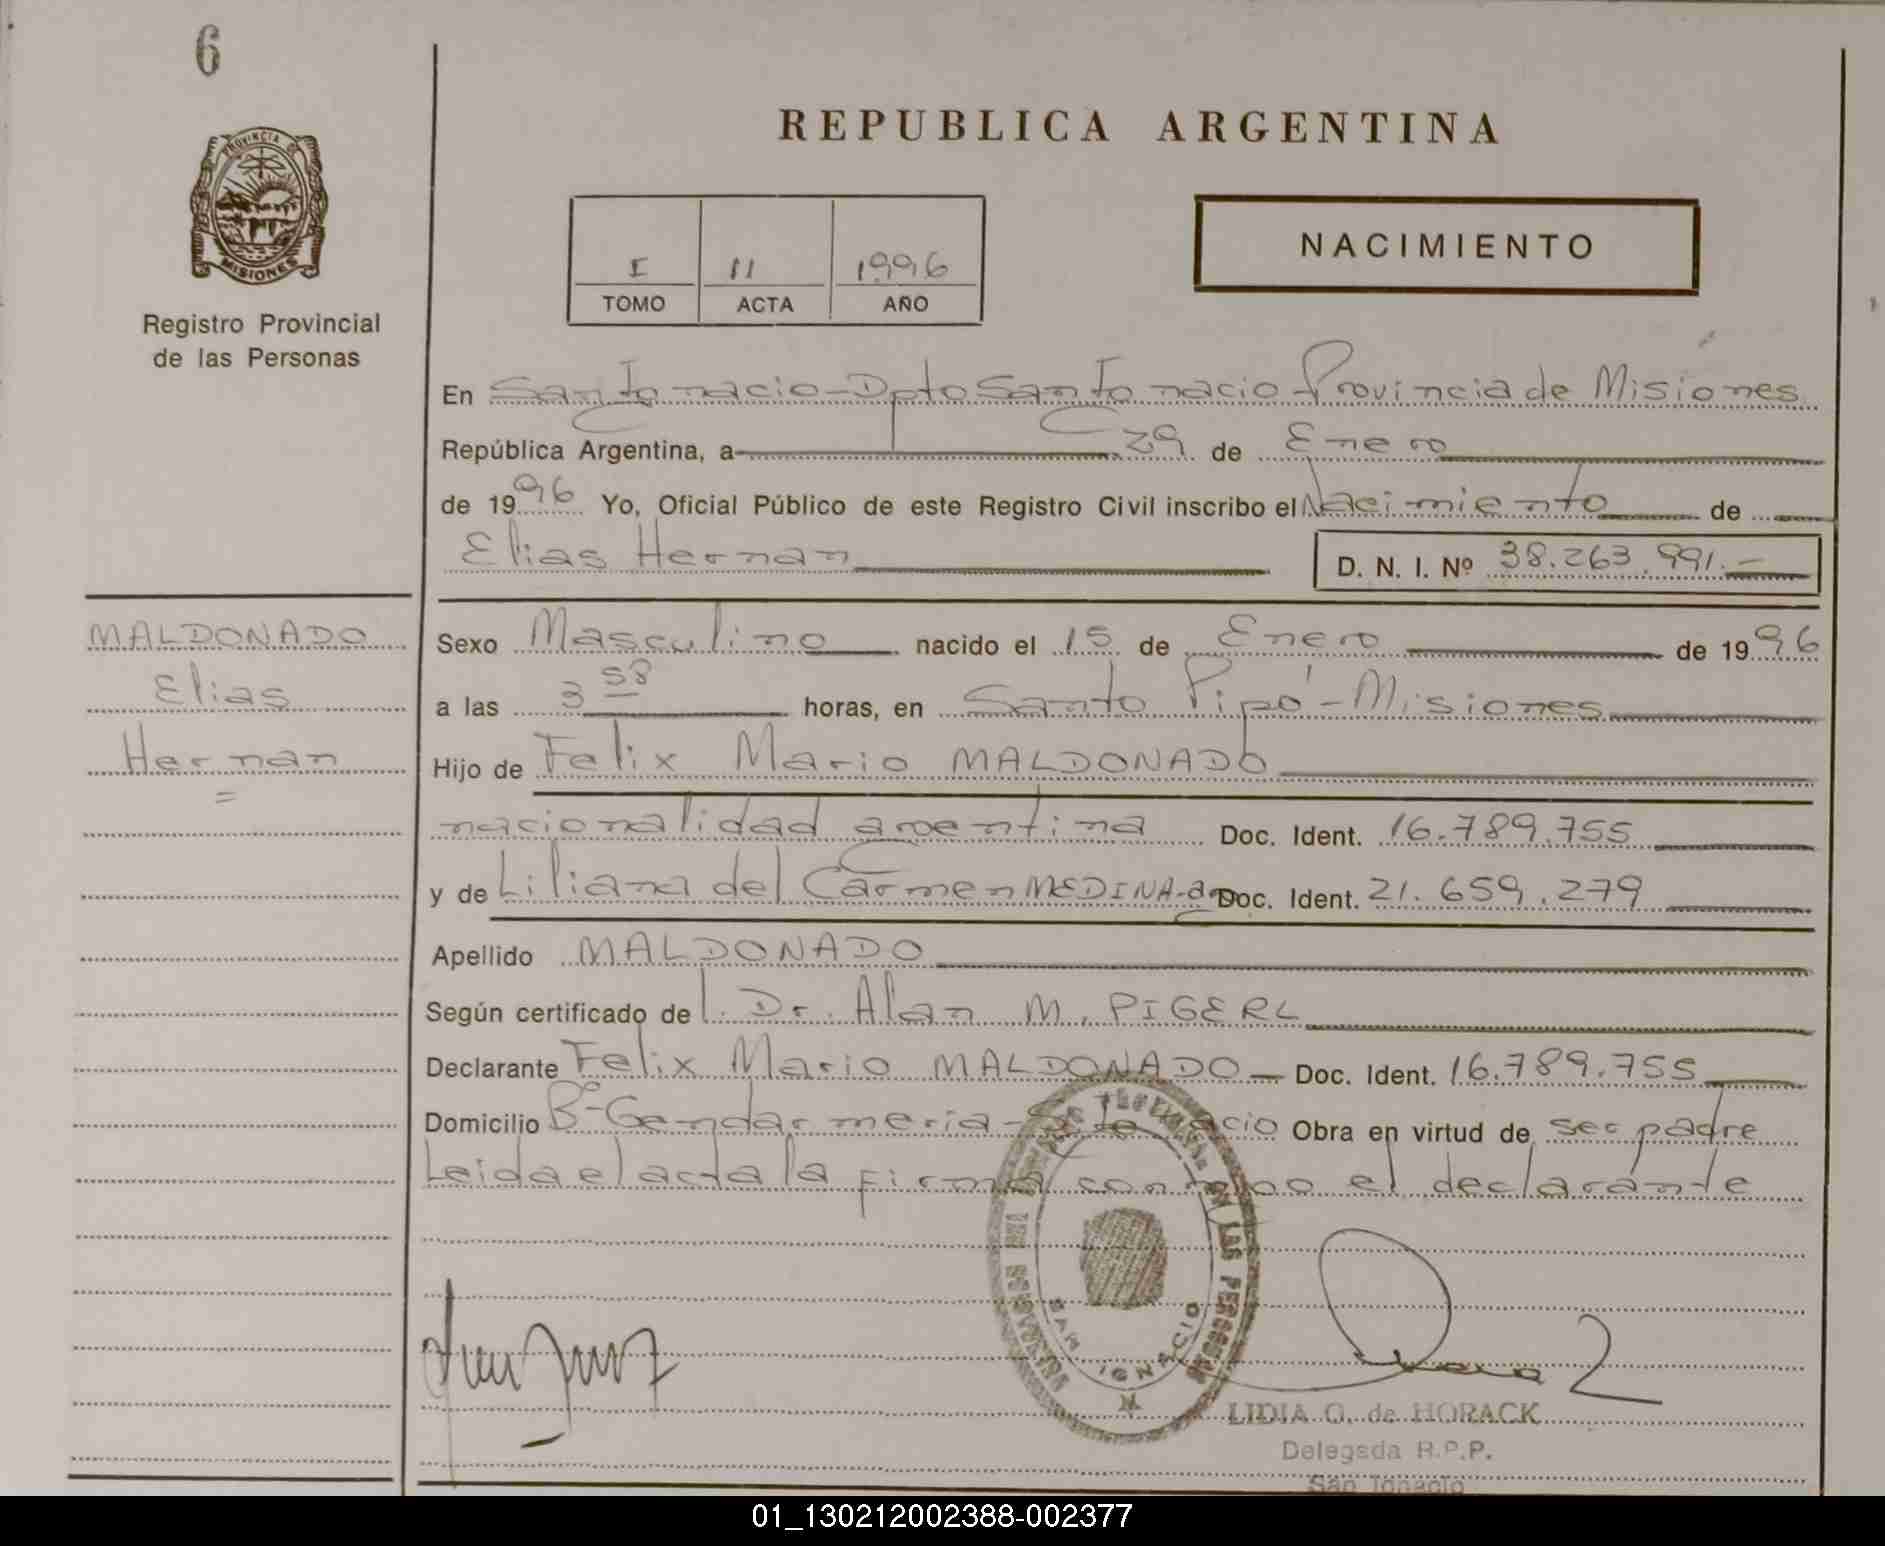 6
PROVINCIA DE
MISIONES
Registro Provincial
de las Personas
REPUBLICA ARGENTINA
I 11 1996
TOMO ACTA AÑO
NACIMIENTO
En San Ignacio - Dpto San Ignacio Provincia de Misiones
República Argentina, a 29 de Enero
de 1996 Yo, Oficial Público de este Registro Civil inscribo el Nacimiento de
Elias Hernan D. N. I. Nº 38.263.991.-
MALDONADO
Elias
Hernan
=
Sexo Masculino nacido el 15 de Enero de 1996
a las 3 58 horas, en Santo Pipó - Misiones
Hijo de Felix Mario MALDONADO
nacionalidad argentina Doc. Ident. 16.789.755
y de Liliana del Carmen MEDINA - arg Doc. Ident. 21.659.279
Apellido MALDONADO
Según certificado de l. Dr. Alan M. PIGERL
Declarante Felix Mario MALDONADO - Doc. Ident. 16.789.755
Domicilio Bº Gendarmeria - Obra en virtud de ser padre
Leida el acta la firma conmigo el declarante
SAN IGNACIO
LIDIA O. de HORACK
Delegada R.P.P.
San Ignacio
01_130212002388-002377